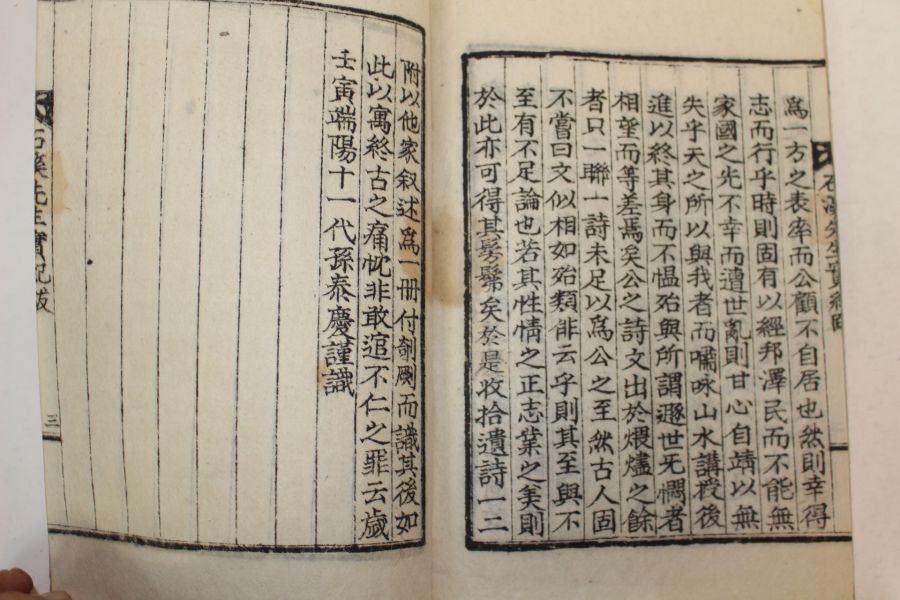 爲一方之表率而公顧不自居也然則幸得
志而行乎時則固有以經邦澤民而不能無
家國之光不幸而遭世亂則甘心自靖以無
失乎天之所以與我者而嘯咏山水講授後
進以終其身而不慍殆與所謂遯世旡憫者
相望而等差焉矣公之詩文出於煨燼之餘
者只一聯一詩未足以爲公之至然古人固
不嘗曰文似相如殆類俳云乎則其至與不
至有不足論也若其性情之正志業之美則
於此亦可得其髣髴矣於是收拾遺詩一二
附以他家叙述爲一冊付剞劂而識其後如
此以寓終古之痛忱非敢逭不仁之罪云歲
壬寅端陽十一代孫泰慶謹識
石溪先生實紀跋
三